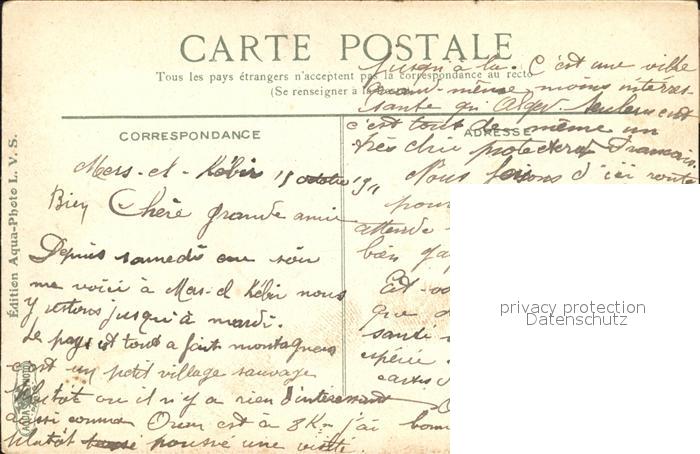 CARTE POSTALE
Tous les pays étrangers n'acceptent pas la correspondance au recto
(Se renseigner à la
CORRESPONDANCE
ADRESSE
Édition Aqua-Photo L. V. S.
Mers-el-Kébir 15 octobre
Bien Chère grande amie
Depuis samedi au soir
me voici à Mers-el Kébir nous
y restons jusqu'à mardi.
Le pays est tout a fait montagneux
c'est un petit village sauvage
plutôt ou il n'y a rien d'intéressant
aussi comme Oran est à 8 Km j'ai
plutôt poussé une visite
jusqu'à la. C'est une ville
quand-même moins intéres-
sante qu'Alger. Seulement
c'est tout de même un
très chic protectorat Francais.
Nous ferons d'ici route
pour
attende
bien
Est-ce
que
santé
espère
cartes
bonn
privacy protection
Datenschutz